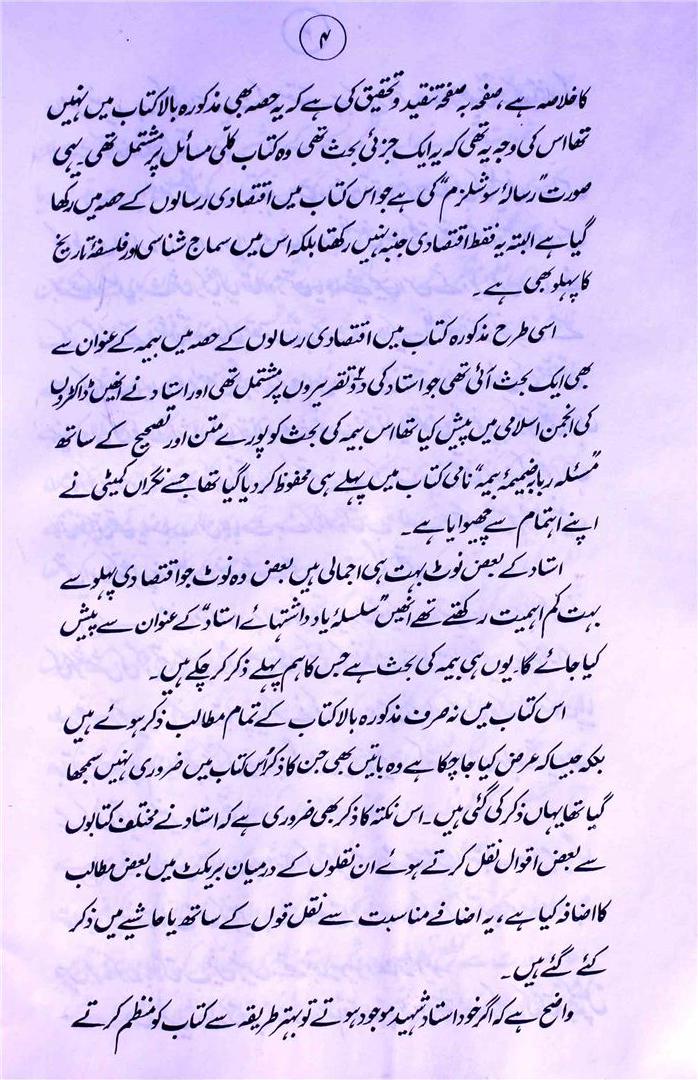 ۴
کا خلاصہ ہے، صفحہ بہ صفحہ تنقید و تحقیق کی ہے کہ یہ حصہ بھی مذکورہ بالا کتاب میں نہیں
تھا اس کی وجہ یہ تھی کہ یہ ایک جزئی بحث تھی وہ کتاب کلّی مسائل پر مشتمل تھی۔ یہی
صورت "رسالۂ سوشلزم" کی ہے جو اس کتاب میں اقتصادی رسالوں کے حصہ میں رکھا
گیا ہے البتہ یہ فقط اقتصادی جنبہ نہیں رکھتا بلکہ اس میں سماج شناسی اور فلسفۂ تاریخ
کا پہلو بھی ہے۔
اسی طرح مذکورہ کتاب میں اقتصادی رسالوں کے حصہ میں بیمہ کے عنوان سے
بھی ایک بحث آئی تھی جو استاد کی دو تقریروں پر مشتمل تھی اور استاد نے انھیں ڈاکٹروں
کی انجمن اسلامی میں پیش کیا تھا اس بیمہ کی بحث کو پورے متن اور تصحیح کے ساتھ
"مسئلہ ربا بضمیمۂ بیمہ" نامی کتاب میں پہلے ہی محفوظ کر دیا گیا تھا جسے نگراں کمیٹی نے
اپنے اہتمام سے چھپوایا ہے۔
استاد کے بعض نوٹ بہت ہی اجمالی ہیں بعض وہ نوٹ جو اقتصادی پہلو سے
بہت کم اہمیت رکھتے تھے انھیں "سلسلۂ یادداشتہائے استاد" کے عنوان سے پیش
کیا جائے گا۔ یوں ہی بیمہ کی بحث ہے جس کا ہم پہلے ذکر کر چکے ہیں۔
اس کتاب میں نہ صرف مذکورہ بالا کتاب کے تمام مطالب ذکر ہوئے ہیں
بلکہ جیسا کہ عرض کیا جا چکا ہے وہ باتیں بھی جن کا ذکر اُس کتاب میں ضروری نہیں سمجھا
گیا تھا یہاں ذکر کی گئی ہیں۔ اس نکتہ کا ذکر بھی ضروری ہے کہ استاد نے مختلف کتابوں
سے بعض اقوال نقل کرتے ہوئے ان نقلوں کے درمیان بریکٹ میں بعض مطالب
کا اضافہ کیا ہے، یہ اضافے مناسبت سے نقل قول کے ساتھ یا حاشیے میں ذکر
کئے گئے ہیں۔
واضح ہے کہ اگر خود استاد شہید موجود ہوتے تو بہتر طریقہ سے کتاب کو منظم کرتے